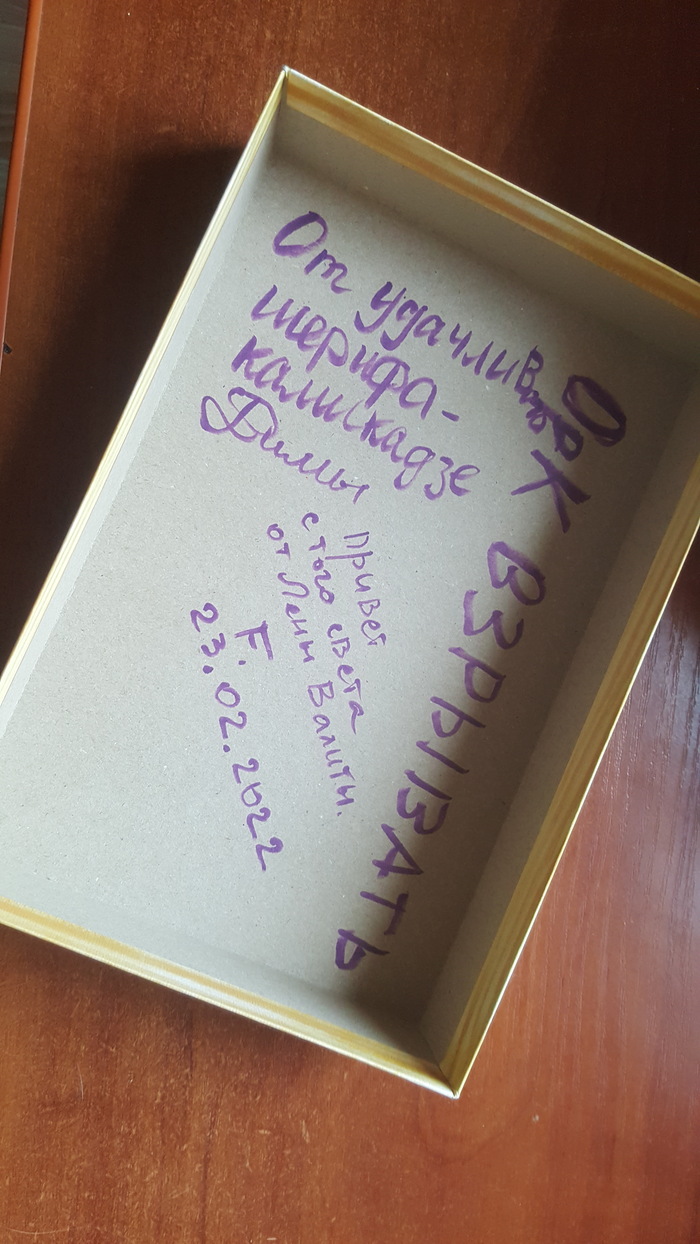 От удачливого
шерифа-
камикадзе
Димы
Орк ВЗРЫВАТЬ
Привет
с того света
от Лены Валити.
F.
23.02.2022